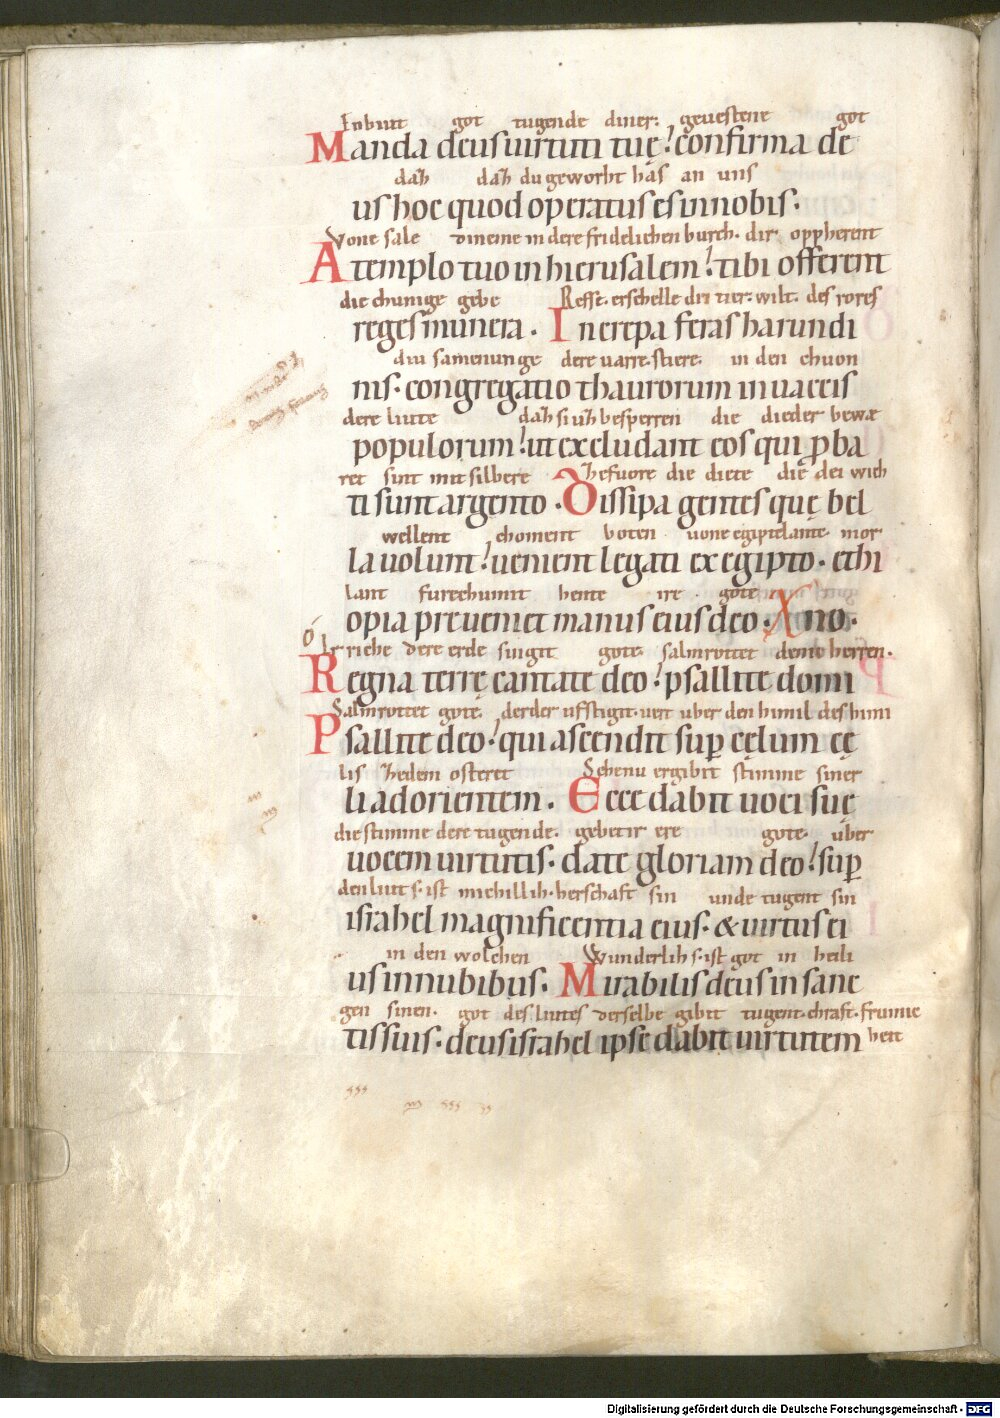 Enbiut got tugende diner. geuestene got
Manda deus uirtuti tuę? confirma de
daħ daħ du geworht has an uns
us hoc quod operatus es in nobis.
Vone sale dineme in dere fridelichen burch. dir oppherent
A templo tuo in hierusalem? tibi offerent
die chunige gebe Reffe. erschelle dri tier. wilt. des rores
reges munera. Increpa feras harundi
diu samenunge dere uarre. stiere. in den chuon
nis. congregatio thaurorum in uaccis
dere liute daħ si uħ besperren die dieder bewæ
populorum? ut excludant eos qui ꝓba
ret sint mit silbere Zefuore die diete die dei wich
ti sunt argento. Dissipa gentes quę bel
wellent choment boten uone egiptelante. mor
la uolunt? uenient legati ex egipto. ethi
lant furechumit hente ire gote
opia preueniet manus eius deo. Xno.
riche dere erde singit gote. salmrottet deme herren.
Regna terrę cantate deo? psallite domi
Salmrottet gote. derder ufstigit. uert uber den himil des himi
Psallite deo. qui ascendit suꝑ cęlum cę
lis Zedem osteret Sehenu ergibit stimme siner
li ad orientem. Ecce dabit uoci suę
die stimme dere tugende. gebet ir ere gote. uber
uocem uirtutis. date gloriam deo? suꝑ
den liut s. ist michillih. herschaft sin unde tugent sin
israhel magnificentia eius. & uirtus ei
in den wolchen Wunderlih s. ist got in heili
us in nubibus. Mirabilis deus in sanc
gen sinen. got des liutes derselbe gibit tugent. chraft. frume
tis suis. deus israhel ipse dabit uirtutem heit
Digitalisierung gefördert durch die Deutsche Forschungsgemeinschaft - DFG